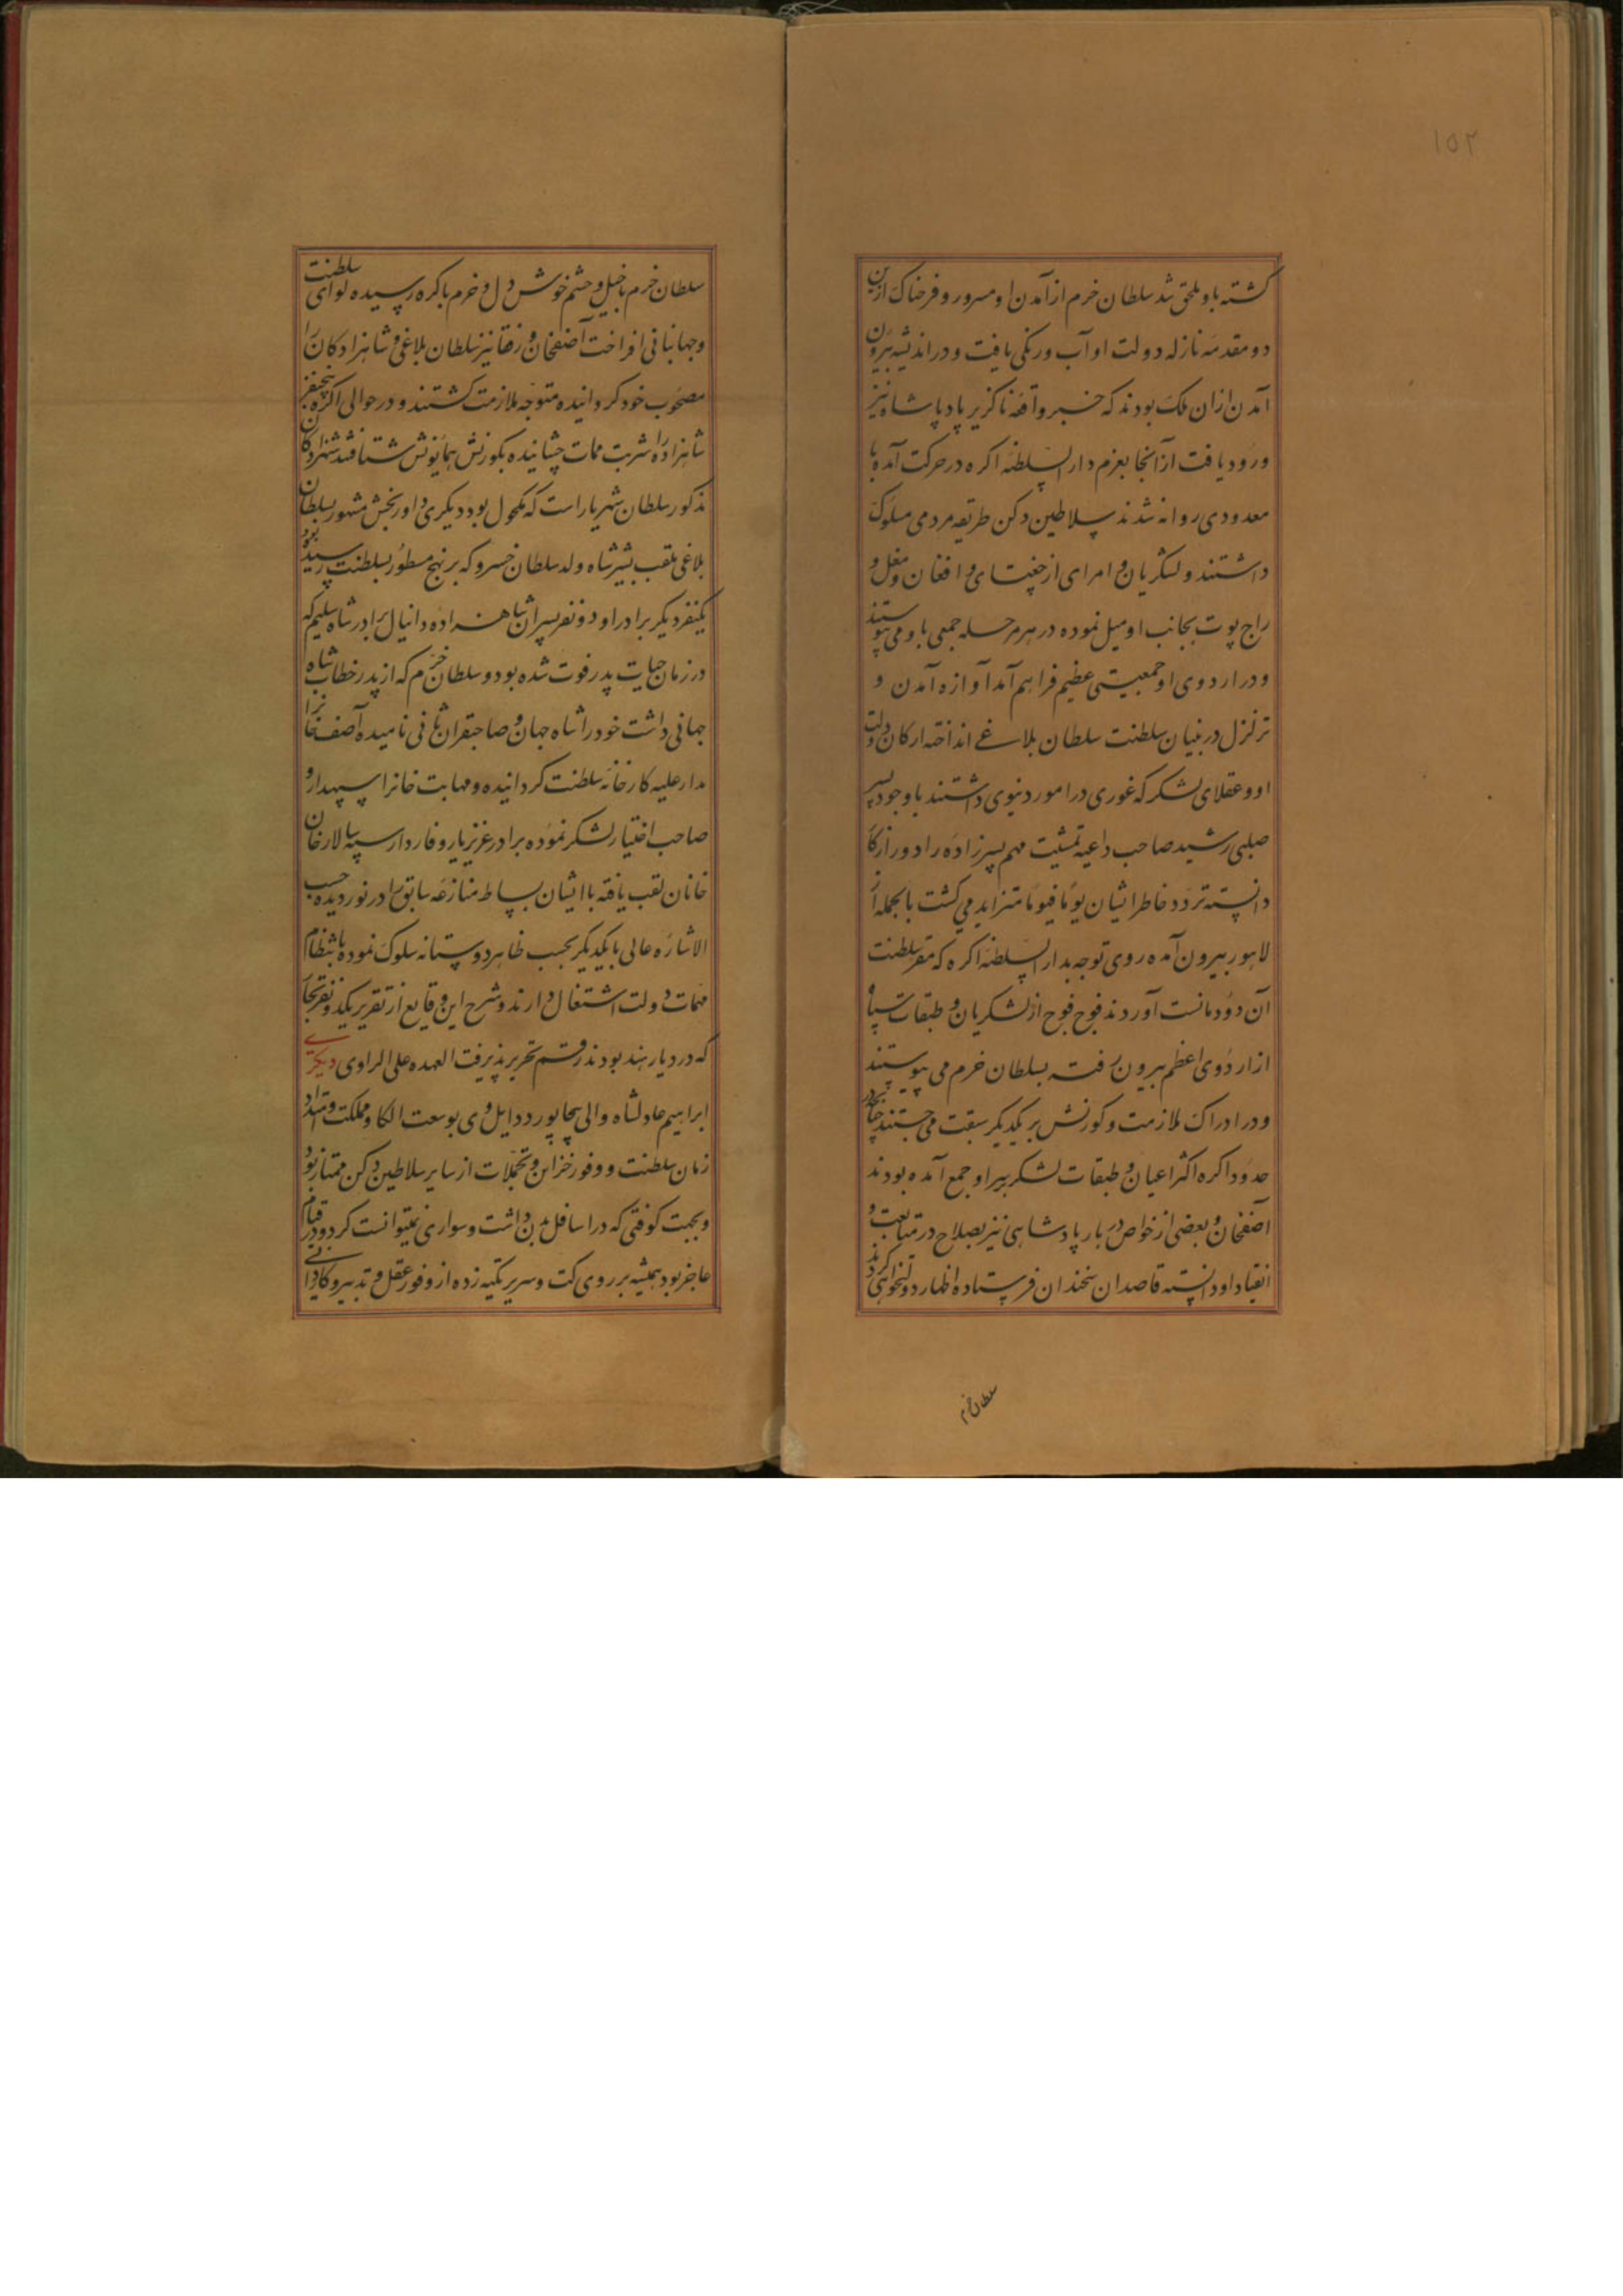 ۱۵۲
کشته باو ملحق شد سلطان خرم از آمدن او مسرور و فرحناک ازین
دو مقدمه نازله دولت او آب ورنکی یافت و در اندیشه بیرون
آمدن ازان ملک بودند که خبر واقعه ناکزیر پادشاه نیز
ورود یافت از آنجا بعزم دار السلطنه اکره در حرکت آمده با
معدودی روانه شدند سلاطین دکن طریقه مردمی مسلوک
داشتند و لشکریان و امرای از جغتای و افغان و مغل و
راج پوت بجانب او میل نموده در هر مرحله جمعی باو می پیوستند
و در اردوی او جمعیتی عظیم فراهم آمد آوازه آمدن او
تزلزل در بنیان سلطنت سلطان بلاغی انداخته ارکان دولت
او و عقلای لشکر که غوری در امور دنیوی داشتند با وجود پسر
صلبی رشید صاحب داعیه تمشیت مهم پسرزاده را دور از کار
دانسته تردد خاطر ایشان یوما فیوما متزاید می کشت بالجمله از
لاهور بیرون آمده روی توجه بدار السلطنه اکره که مقر سلطنت
آن دودمانست آوردند فوج فوج از لشکریان و طبقات سپاه
از اردوی اعظم بیرون رفته بسلطان خرم می پیوستند
و در ادراک ملازمت و کورنش بر یکدیکر سبقت می جستند چنانچه در
حدود اکره اکثر اعیان و طبقات لشکر بیر او جمع آمده بودند
آصفخان و بعضی از خواص دربار پادشاهی نیز صلاح در متابعت و
انقیاد او دانسته قاصدان سخندان فرستاده اظهار دولتخواهی کردند
سلطان خرم
سلطان خرم با خیل و حشم خوش دل و خرم باکره رسیده لوای سلطنت
و جهانبانی افراخت آصفخان و رفقا نیز سلطان بلاغی و شاهزادکان را
مصحوب خود کردانیده متوجه ملازمت کشتند و در حوالی اکره پنجنفر
شاهزاده را شربت ممات چشانیده بکورنش همایونش شتافتند شهزادکان
مذکور سلطان شهریار است که مکحول بود دیکری داور بخش مشهور بسلطان
بلاغی ملقب بشیر شاه ولد سلطان خسرو که بر نهج مسطور بسلطنت رسیده بود
یکنفر دیکر برادر او دو نفر پسران شاهزاده دانیال برادر شاه سلیم که
در زمان حیات پدر فوت شده بود و سلطان خرم که از پدر خطاب شاه
جهانی داشت خود را شاه جهان و صاحبقران ثانی نامیده آصف خانرا
مدار علیه کارخانه سلطنت کردانیده و مهابت خانرا سپهدار و
صاحب اختیار لشکر نموده برادر عزیز یار وفادار سپه سالار خان
خانان لقب یافته با ایشان بساط منازعه سابق را در نوردیده حسب
الاشاره عالی با یکدیکر بحسب ظاهر دوستانه سلوک نموده بانتظام
مهمات دولت اشتغال دارند و شرح این وقایع از تقریر یکدو نفر تجار
که در دیار هند بودند رقم تحریر پذیرفت العهده علی الراوی دیکری
ابراهیم عادلشاه والی بیجاپور دایل وی بوسعت الکا و مملکت و امتداد
زمان سلطنت و وفور خزاین و تجملات از سایر سلاطین دکن ممتاز بود
و بجهت کوفتی که در اسافل بدن داشت و سواری نمیتوانست کرد و در قیام
عاجز بود همیشه بر روی کت و سریر تکیه زده از وفور عقل و تدبیر و کاردانی